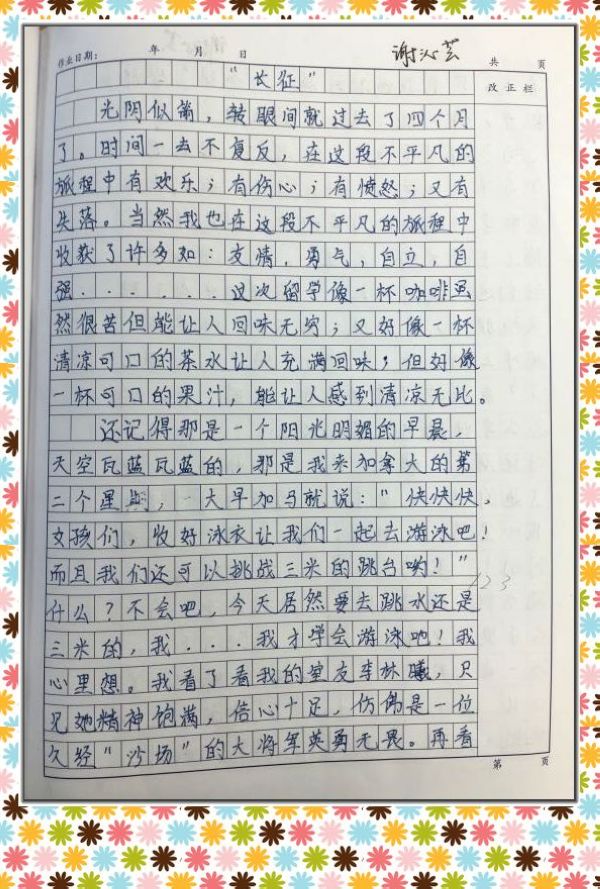 作业日期： 年 月 日 谢沁芸 共 页
"长征" 改正栏
光阴似箭，转眼间就过去了四个月
了。时间一去不复反，在这段不平凡的
旅程中有欢乐；有伤心；有愤怒；又有
失落。当然我也在这段不平凡的旅程中
收获了许多如：友情，勇气，自立，自
强......这次留学像一杯咖啡虽
然很苦但能让人回味无穷；又好像一杯
清凉可口的茶水让人充满回味；但好像
一杯可口的果汁，能让人感到清凉无比。
还记得那是一个阳光明媚的早晨，
天空瓦蓝瓦蓝的，那是我来加拿大的第
二个星期，一大早加马就说："快快快，
女孩们，收好泳衣让我们一起去游泳吧！
而且我们还可以挑战三米的跳台哟！"
123
什么？不会吧，今天居然要去跳水还是
三米的，我...我才学会游泳吧！我
心里想。我看了看我的室友李林曦，只
见她精神饱满，信心十足，仿佛是一位
久经"沙场"的大将军英勇无畏。再看
第 页